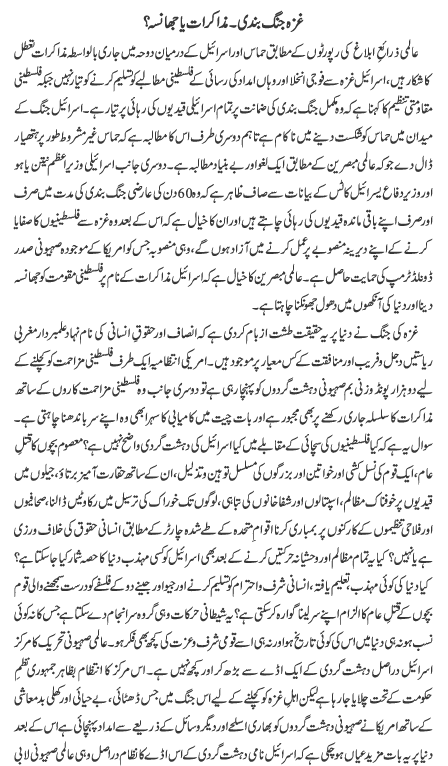 غزہ جنگ بندی۔ مذاکرات یا جھانسہ؟
عالمی ذرائع ابلاغ کی رپورٹوں کے مطابق حماس اور اسرائیل کے درمیان دوحہ میں جاری بالواسطہ مذاکرات تعطل
کا شکار ہیں، اسرائیل غزہ سے فوجی انخلا اور وہاں امداد کی رسائی کے فلسطینی مطالبے کو تسلیم کرنے کو تیار نہیں جبکہ فلسطینی
مقاومتی تنظیم کا کہنا ہے کہ وہ مکمل جنگ بندی کی ضمانت پر تمام اسرائیلی قیدیوں کی رہائی پر تیار ہے۔ اسرائیل جنگ کے
میدان میں حماس کو شکست دینے میں ناکام ہے تاہم دوسری طرف اس کا مطالبہ ہے کہ حماس غیر مشروط طور پر ہتھیار
ڈال دے جو کہ عالمی مبصرین کے مطابق ایک لغو اور بے بنیاد مطالبہ ہے۔ دوسری جانب اسرائیلی وزیر اعظم نیتن یاہو
اور وزیر دفاع یسرائیل کاٹس کے بیانات سے صاف ظاہر ہے کہ وہ 60 دن کی عارضی جنگ بندی کی مدت میں صرف
اور صرف اپنے باقی ماندہ قیدیوں کی رہائی چاہتے ہیں اور ان کا خیال ہے کہ اس کے بعد وہ غزہ سے فلسطینیوں کا صفایا
کرنے کے اپنے دیرینہ منصوبے پر عمل کرنے میں آزاد ہوں گے، وہی منصوبہ جس کو امریکا کے موجودہ صہیونی صدر
ڈونلڈ ٹرمپ کی حمایت حاصل ہے۔ عالمی مبصرین کا خیال ہے کہ اسرائیل مذاکرات کے نام پر فلسطینی مقومت کو جھانسہ
دینا اور دنیا کی آنکھوں میں دھول جھونکنا چاہتا ہے۔
غزہ کی جنگ نے دنیا پر یہ حقیقت طشت از بام کر دی ہے کہ انصاف اور حقوق انسانی کی نام نہاد علمبردار مغربی
ریاستیں دجل و فریب اور منافقت کے کس معیار پر موجود ہیں۔ امریکی انتظامیہ ایک طرف فلسطینی مزاحمت کو کچلنے کے
لیے دو ہزار پونڈ وزنی بم صہیونی دہشت گردوں کو پہنچا رہی ہے تو دوسری جانب وہ فلسطینی مزاحمت کاروں کے ساتھ
مذاکرات کا سلسلہ جاری رکھنے پر بھی مجبور ہے اور بات چیت میں کامیابی کا سہرا بھی وہ اپنے سر باندھنا چاہتی ہے۔
سوال یہ ہے کہ کیا فلسطینیوں کی سچائی کے مقابلے میں کیا اسرائیل کی دہشت گردی واضح نہیں ہے؟ معصوم بچوں کا قتل
عام، ایک قوم کی نسل کشی اور خواتین اور بزرگوں کی مسلسل توہین و تذلیل، ان کے ساتھ حقارت آمیز برتاؤ، جیلوں میں
قیدیوں پر خوفناک مظالم، اسپتالوں اور شفاخانوں کی تباہی، لوگوں تک خوراک کی ترسیل میں رکاوٹیں ڈالنا، صحافیوں
اور فلاحی تنظیموں کے کارکنوں پر بمباری کرنا اقوام متحدہ کے طے شدہ چارٹر کے مطابق انسانی حقوق کی خلاف ورزی
ہے یا نہیں؟ کیا یہ تمام مظالم اور وحشیانہ حرکتیں کرنے کے بعد بھی اسرائیل کو کسی مہذب دنیا کا حصہ شمار کیا جا سکتا ہے؟
کیا دنیا کی کوئی مہذب تعلیم یافتہ، انسانی شرف واحترام کو تسلیم کرنے اور جیو اور جینے دو کے فلسفے کو درست سمجھنے والی قوم
بچوں کے قتل عام کا الزام اپنے سر لینا گوارہ کر سکتی ہے؟ یہ شیطانی حرکات وہی گروہ سر انجام دے سکتا ہے جس کا نہ کوئی
نسب ہو نہ ہی دنیا میں اس کی کوئی تاریخ ہو اور نہ ہی اسے قومی شرف و عزت کی کچھ بھی فکر ہو۔ عالمی صہیونی تحریک کا مرکز
اسرائیل دراصل دہشت گردی کے ایک اڈے سے بڑھ کر اور کچھ نہیں ہے۔ اس مرکز کا انتظام بظاہر جمہوری نظم
حکومت کے تحت چلایا جا رہا ہے لیکن اہل غزہ کو کچلنے کے لیے اس جنگ میں جس ڈھٹائی، بے حیائی اور کھلی بدمعاشی
کے ساتھ امریکا نے صہیونی دہشت گردوں کو بھاری اسلحے اور دیگر وسائل کے ذریعے سے امداد پہنچائی ہے اس کے بعد
یہ بات مزید عیاں ہو چکی ہے کہ اسرائیل نامی دہشت گردی کے اس اڈے کا نظام دراصل وہی عالمی صہیونی لابی